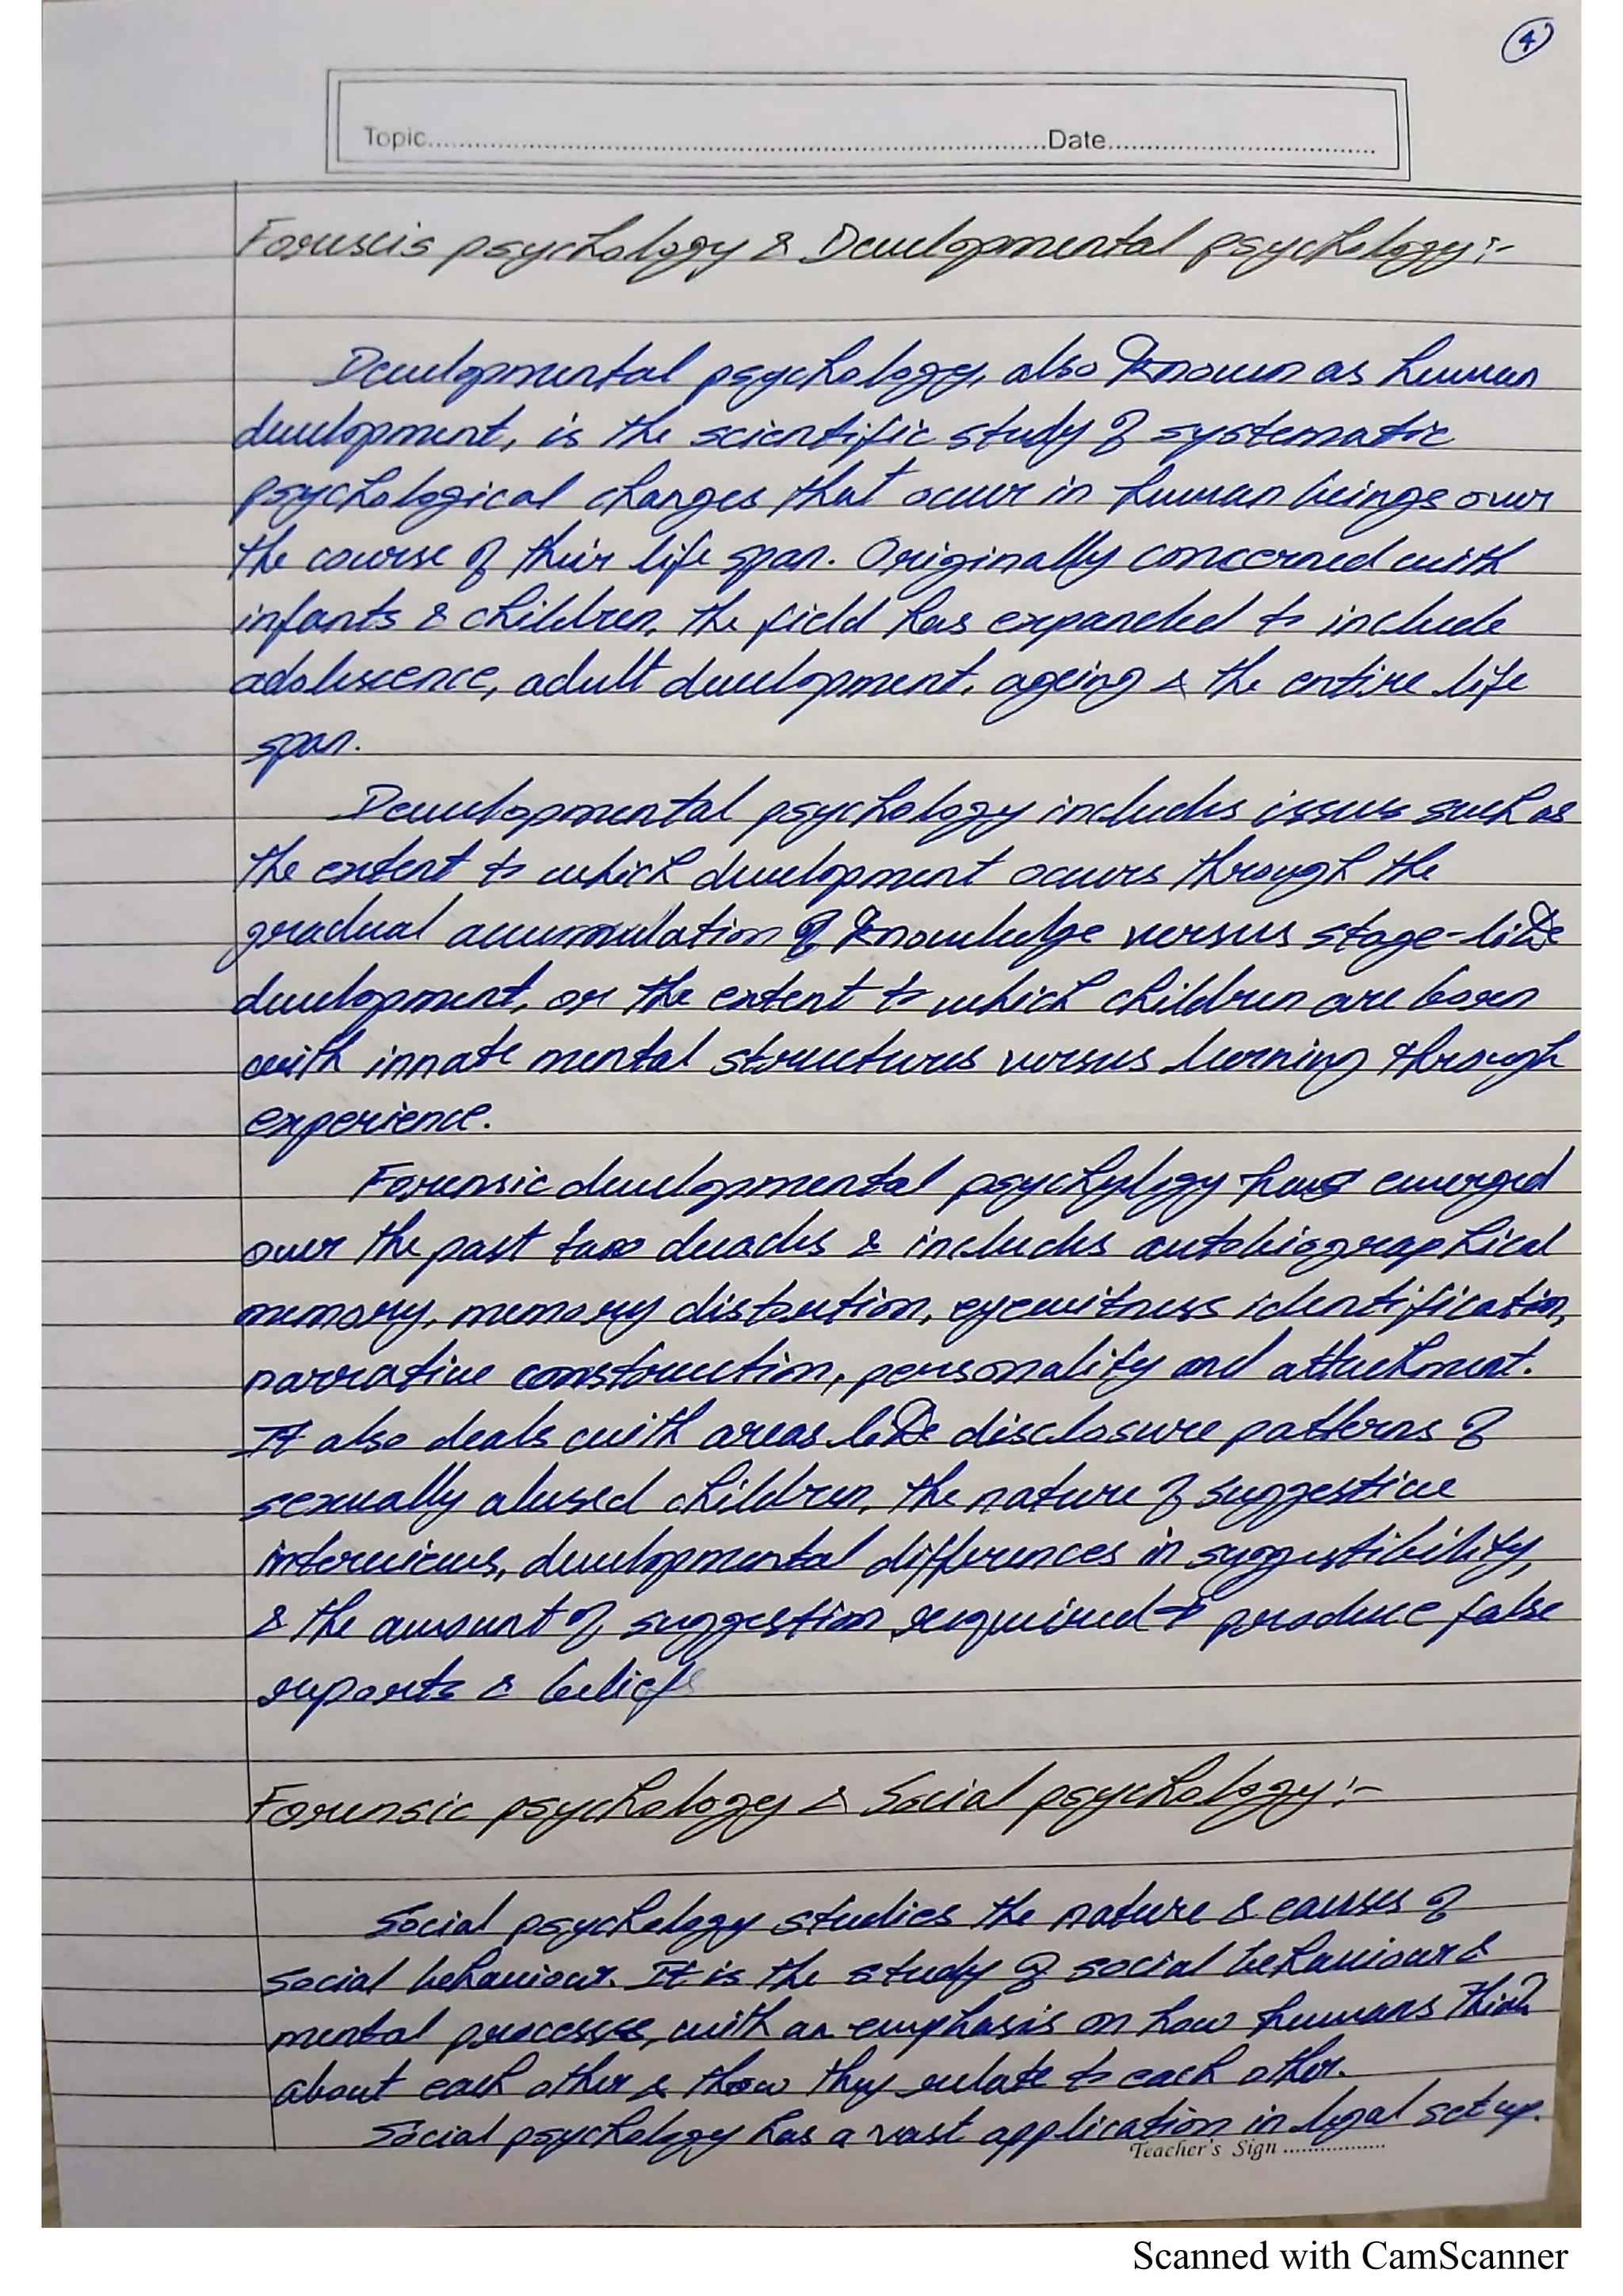 4
Topic.......................................................Date..............................
Foruscis psychology & Developmental psychology:-
Developmental psychology, also known as human
development, is the scientific study of systematic
psychological changes that occur in human beings over
the course of their life span. Originally concerned with
infants & children, the field has expanded to include
adolescence, adult development, ageing & the entire life
span.
Developmental psychology includes issues such as
the extent to which development occurs through the
gradual accumulation of knowledge versus stage-like
development, or the extent to which children are born
with innate mental structures versus learning through
experience.
Forensic developmental psychylogy has emerged
over the past two decades & includes autobiographical
memory, memory distortion, eyewitness identification,
narrative construction, personality and attachment.
It also deals with areas like disclosure patterns of
sexually abused children, the nature of suggestive
interviews, developmental differences in suggestibility,
& the amount of suggestion required to produce false
reports & beliefs
Forensic psychology & Social psychology:-
Social psychology studies the nature & causes of
social behaviour. It is the study of social behaviour &
mental processes, with an emphasis on how humans think
about each other & thow they relate to each other.
Social psychology has a vast application in legal set up.
Teacher's Sign ..................
Scanned with CamScanner